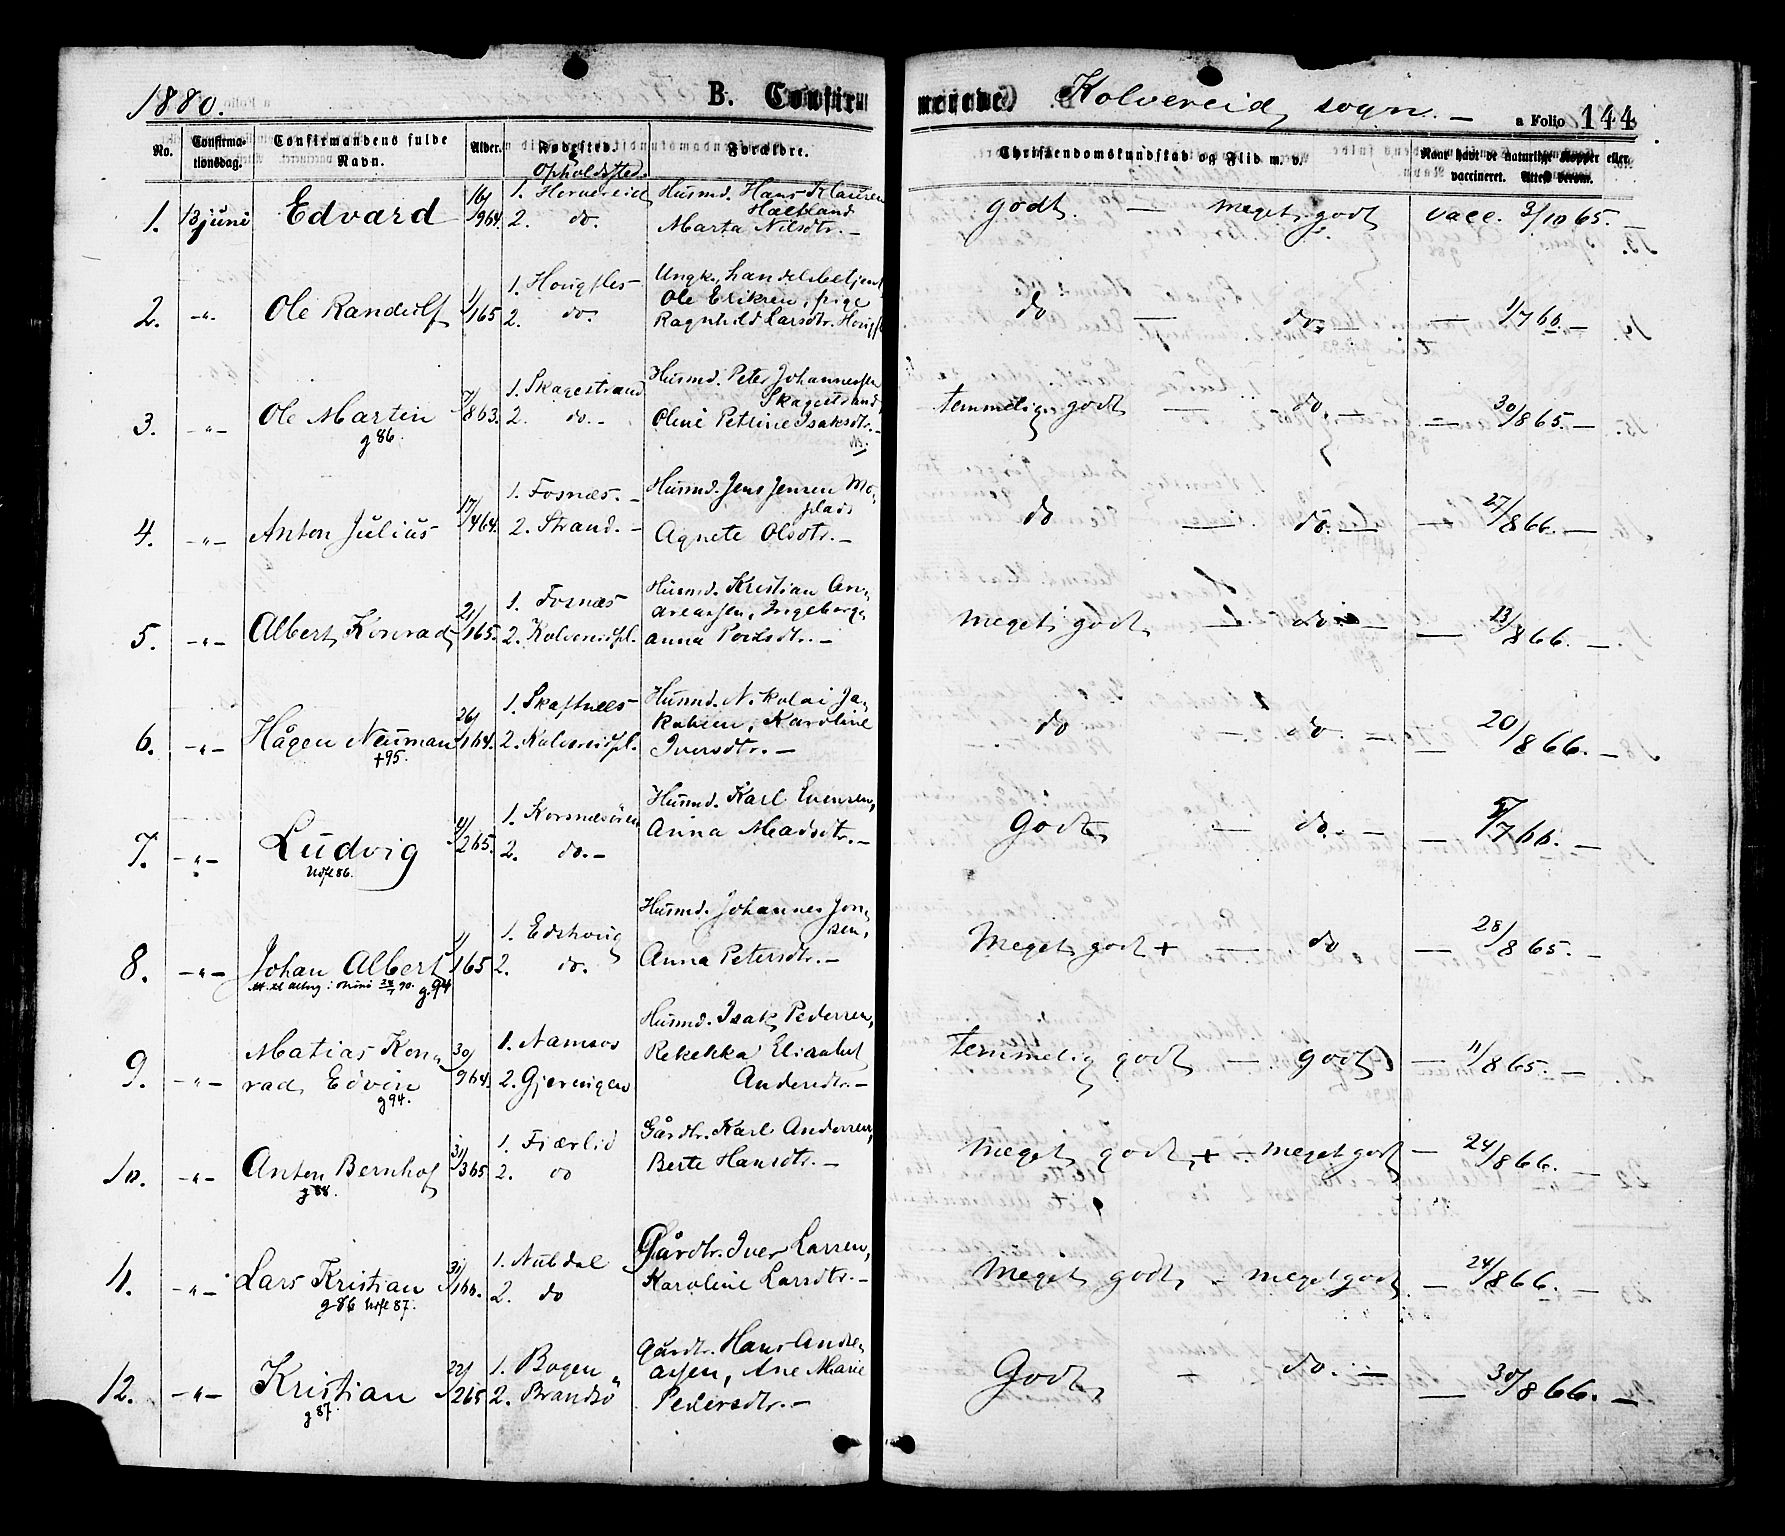 1880. B. Confirmerede. Kolvereid sogn. — a Folio 144
No. Confirmationsdag. Confirmandens fulde Navn. Alder. Fødested. Opholdssted. Forældre. Christendomskundskab og Flid m. v. Naar havt de naturlige Kopper eller vaccineret. Attest derom.
1. 13 juni Edvard 16/9 64. 1. Horvereid Husmd. Hans Klausen
2. do. Marta Nilsdtr. — godt. — meget godt vacc. 3/10 65. —
2. -"- Ole Randulf 1/1 65 1. Hougfles Ungk., handelsbetjent
2. do. Ole Eriksen, pige
Ragnhild Larsdtr. do — do. — — 1/7 66. —
3. -"- Ole Martin 7/8 63. 1. Skagestrand Husmd. Peter Johannessen
Skagestrand,
g 86. 2. do. - Oline Petrine Isaksdtr. — temmelig godt — do. — — 30/8 65. —
4. -"- Anton Julius 17/4 64. 1. Fosnæs. — Husmd. Jens Jensen Mo-
plads
2. Strand. — Agnete Olsdtr. — do — do. — — 27/8 66. —
5. -"- Albert Konrad 21/1 65. 1. Fosnæs Husmd. Kristian An-
dreassen, Ingeborg
2. Kolvereidpl. anna Poulsdtr. — meget godt — do. — — 13/8 66. —
6. -"- Hågen Neuman 26/1 64. 1. Skafnæs Husmd. Nikolai Ja-
kobsen, Karoline
+95. 2. Kolvereidpl. Iversdtr. — do — do. — — 20/8 66. —
7. -"- Ludvig 4/2 65. 1. Korsnæsören Husmd. Karl Evensen,
Udfl 86. 2. do. — Anna Madsdtr. — Godt — do. — — /7 66. —
8. -"- Johan Albert 1/1 65 1. Edshoug Husmd. Johannes Jon-
sen,
g. 94 2. do. Anna Petersdtr. — Meget godt + — do — 28/8 65. —
9. -"- Matias Kon- 30/9 64. 1. Namsos Husmd. Isak Pedersen,
rad Edvin 2. Gjerdingen Rebekka Elisabet
g 94. Andersdtr. — temmelig godt — godt — 11/8 65. —
10. -"- Anton Bernhof 31/3 65 1. Fjærlid Gårdbr. Karl Andersen,
g 88. 2. do Berte Hansdtr. — meget godt + — meget godt — 24/8 66. —
11. -"- Lars Kristian 31/1 66. 1. Nubdal Gårdbr. Iver Larsen,
g 86 Udfl 87. 2. do Karoline Larsdtr. — Meget godt - meget godt — 24/8 66. —
12. -"- Kristian 22/2 65 1. Bogen Gårdbr. Hans Andre-
g 87. 2. Brandsö assen, Ane Marie
Pedersdtr. — Godt - do. — — 30/8 66. —